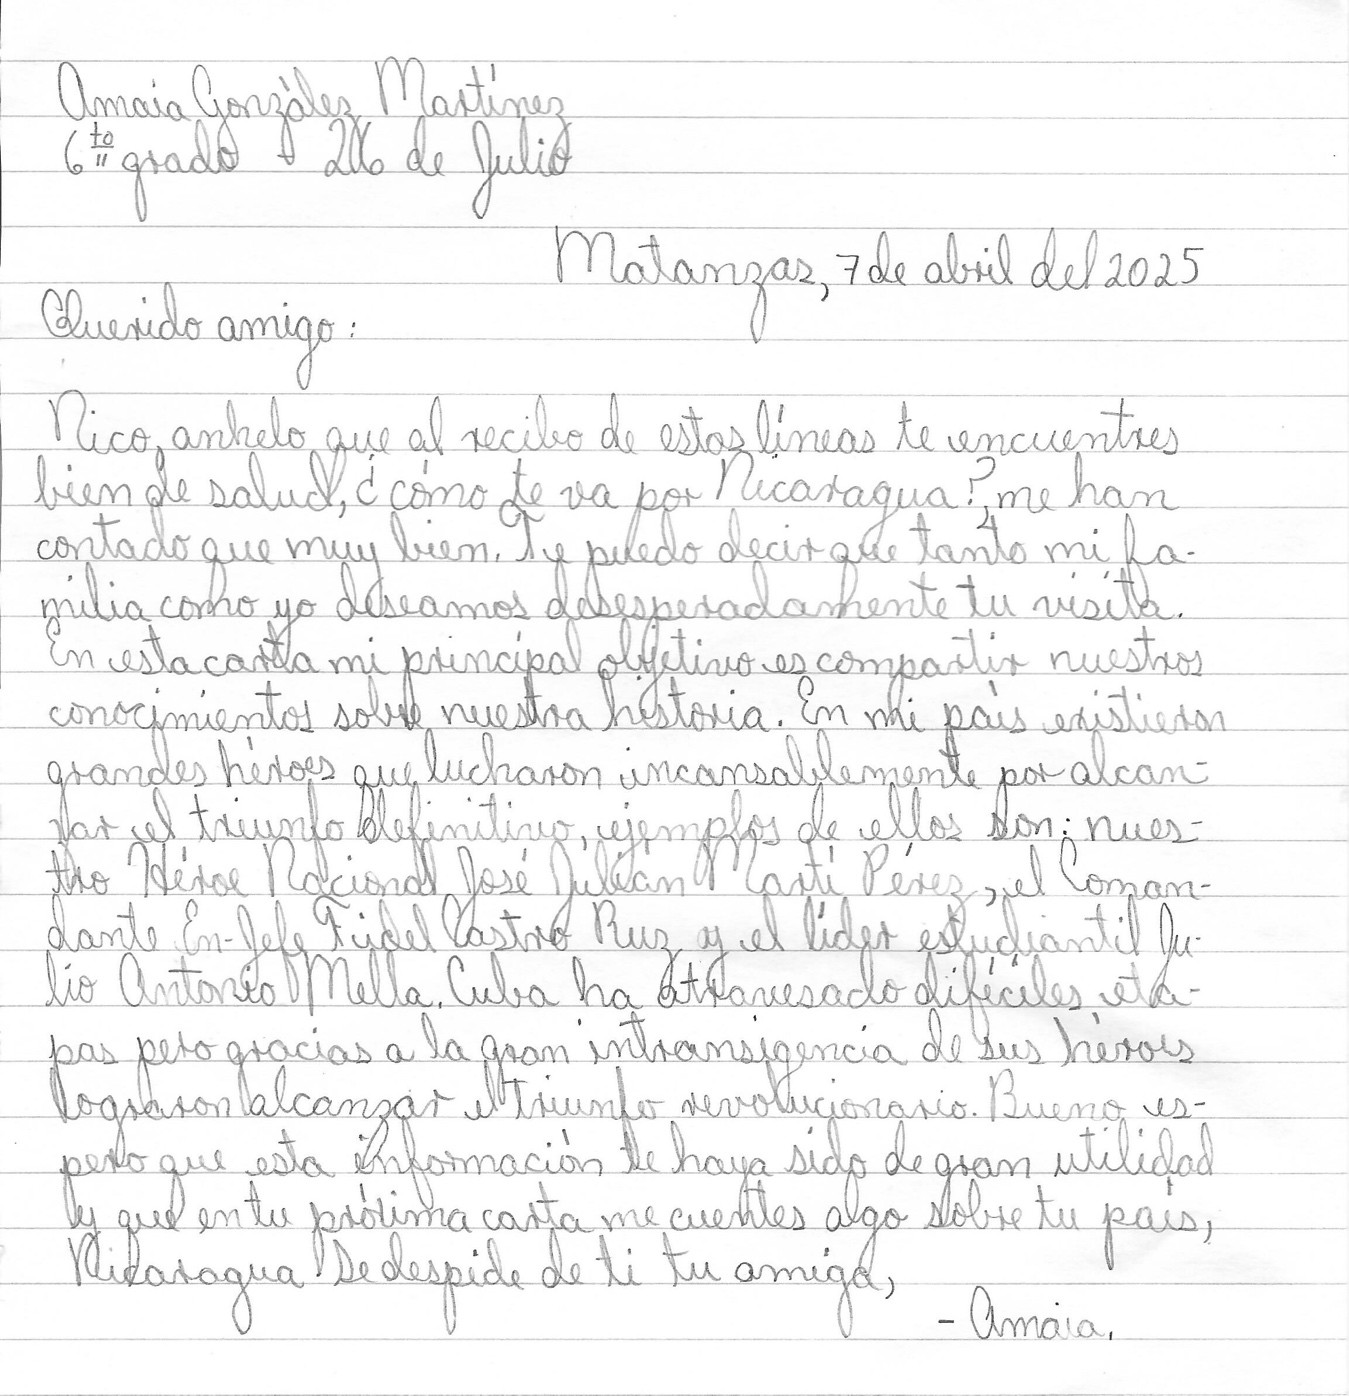 Amaia González Martínez
6to grado - 26 de Julio
Matanzas, 7 de abril del 2025
Querido amigo:
Nico, anhelo que al recibo de estas líneas te encuentres
bien de salud, ¿cómo te va por Nicaragua?, me han
contado que muy bien. Te puedo decir que tanto mi fa-
milia como yo deseamos desesperadamente tu visita.
En esta carta mi principal objetivo es compartir nuestros
conocimientos sobre nuestra historia. En mi país existieron
grandes héroes que lucharon incansablemente por alcan-
zar el triunfo definitivo, ejemplos de ellos son: nues-
tro Héroe Nacional José Julián Martí Pérez, el Coman-
dante En-Jefe Fidel Castro Ruz y el líder estudiantil Ju-
lio Antonio Mella. Cuba ha atravesado difíciles eta-
pas pero gracias a la gran intransigencia de sus héroes
lograron alcanzar el triunfo revolucionario. Bueno es-
pero que esta información te haya sido de gran utilidad
y que en tu próxima carta me cuentes algo sobre tu país,
Nicaragua Se despide de ti tu amiga,
- Amaia.